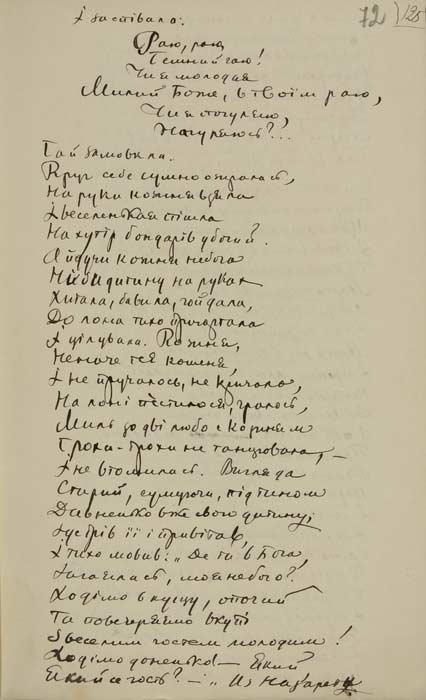 І заспівала:
72 128
Раю, раю,
Темний гаю!
Чи я молодая
Милий Боже, в твоїм раю,
Чи я погуляю,
Нагуляюсь?..
Та й замовкла.
Круг себе сумно озиралась,
На руки козеня взяла
І веселенькая пішла
На хутір бондарів убогий.
А йдучи козеня небога
Ніби дитину на руках
Хитала, бавила, гойдала,
До лона тихо пригортала
І цілувала. Козеня,
Неначе теє кошеня,
І не пручалось, не кричало,
На лоні пестилося, гралось,
Миль зо дві любо с козенем
Трохи-трохи не танцювала, —
І не втомилась. Вигляда
Старий, сумуючи, під тином
Давненько вже свого дитину;
Зустрів її і привітав,
І тихо мовив: „Де ти в Бога,
Загаялась, моя небого?
Ходімо в кущу, опочий
Та повечеряємо вкупі
З веселим гостем молодим!
Ходімо доненько! — Який
Який се гость? — „Із Назарета